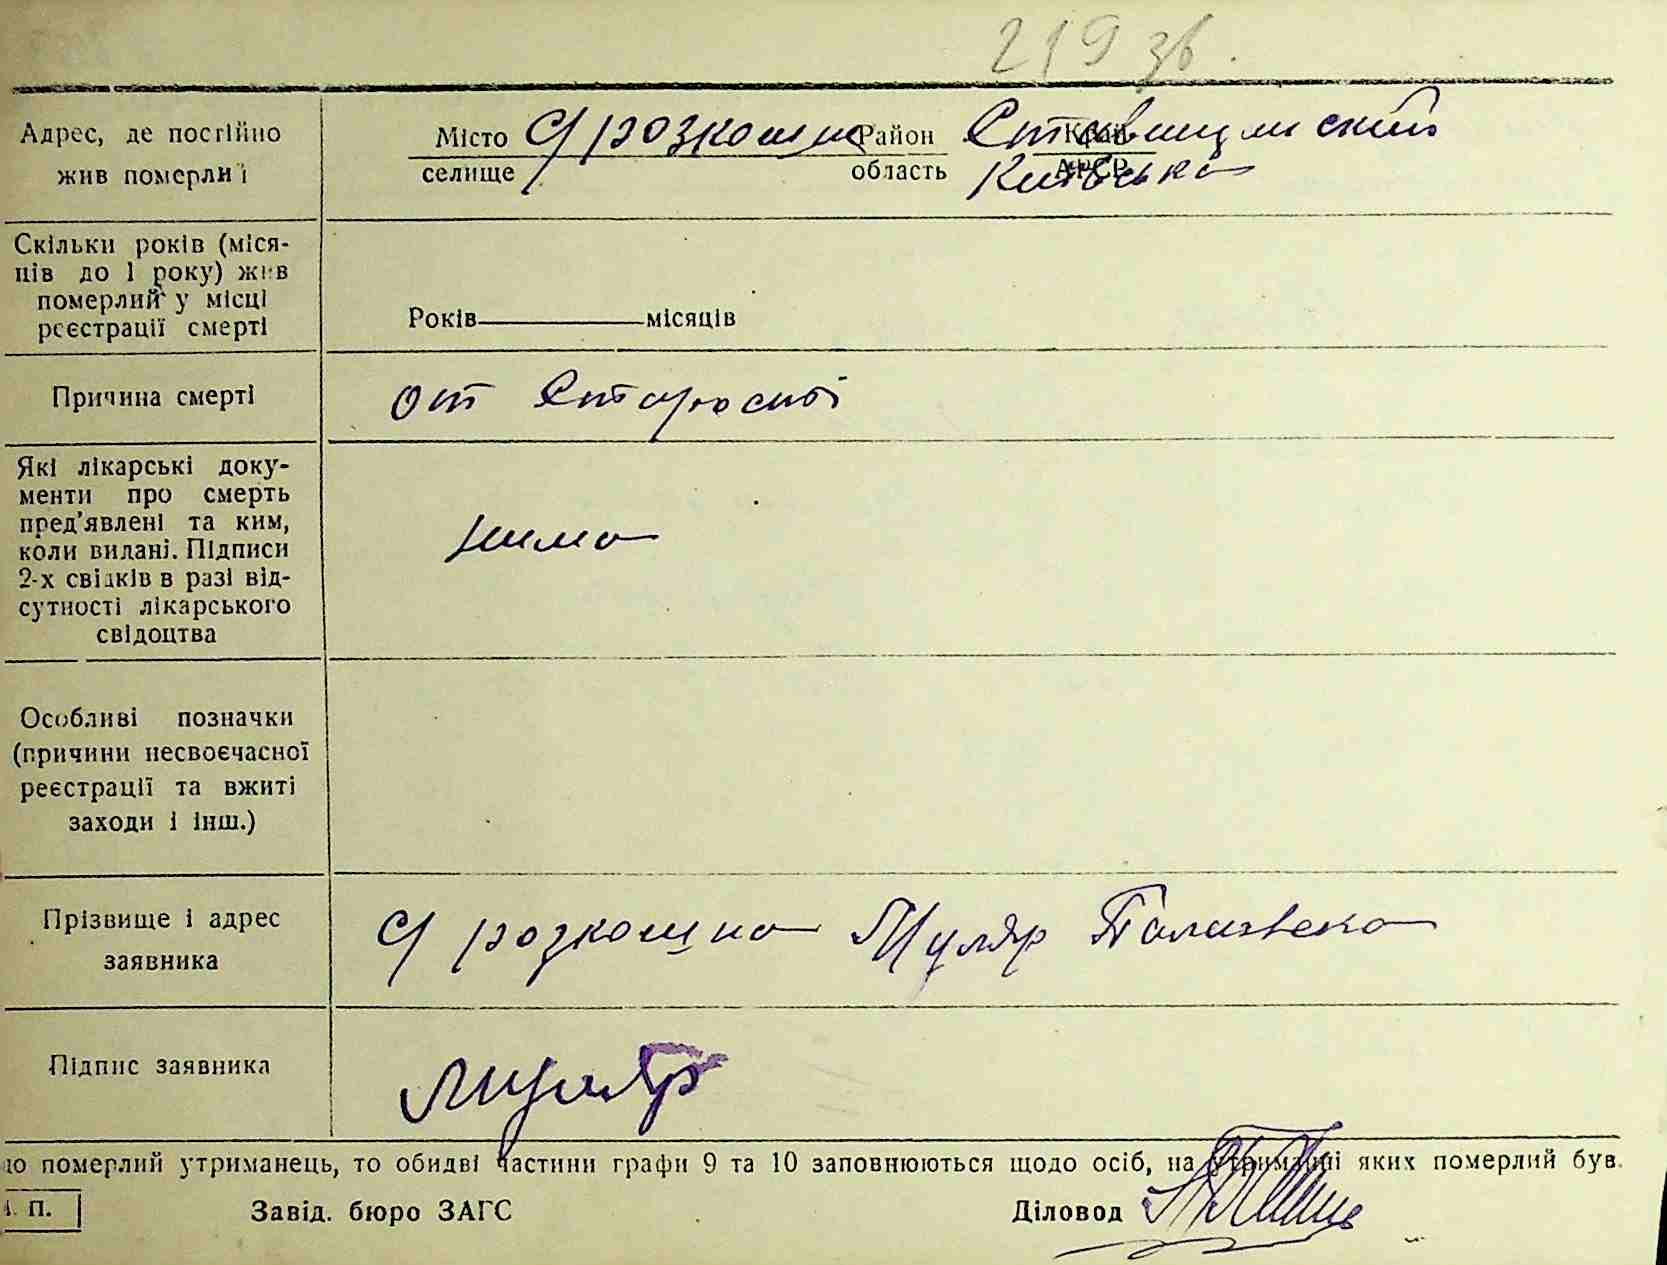 219 зв.
Адрес, де постійно
жив померлиї
Місто с/ розкошна Район Ставищинский Край
селище область Київська АРСР
Скільки років (міся-
ців до 1 року) жив
померлий у місці
реєстрації смерті
Років— місяців
Причина смерті
от старости
Які лікарські доку-
менти про смерть
пред'явлені та ким,
коли видані. Підписи
2-х свідків в разі від-
сутності лікарського
свідоцтва
нима
Особливі позначки
(причини несвоєчасної
реєстрації та вжиті
заходи і інш.)
Прізвище і адрес
заявника
с/ розкошна Муляр
Підпис заявника
Муляр
но померлий утриманець, то обидві частини графи 9 та 10 заповнюються щодо осіб, на утриманні яких померлий був.
П.
Завід. бюро ЗАГС
Діловод